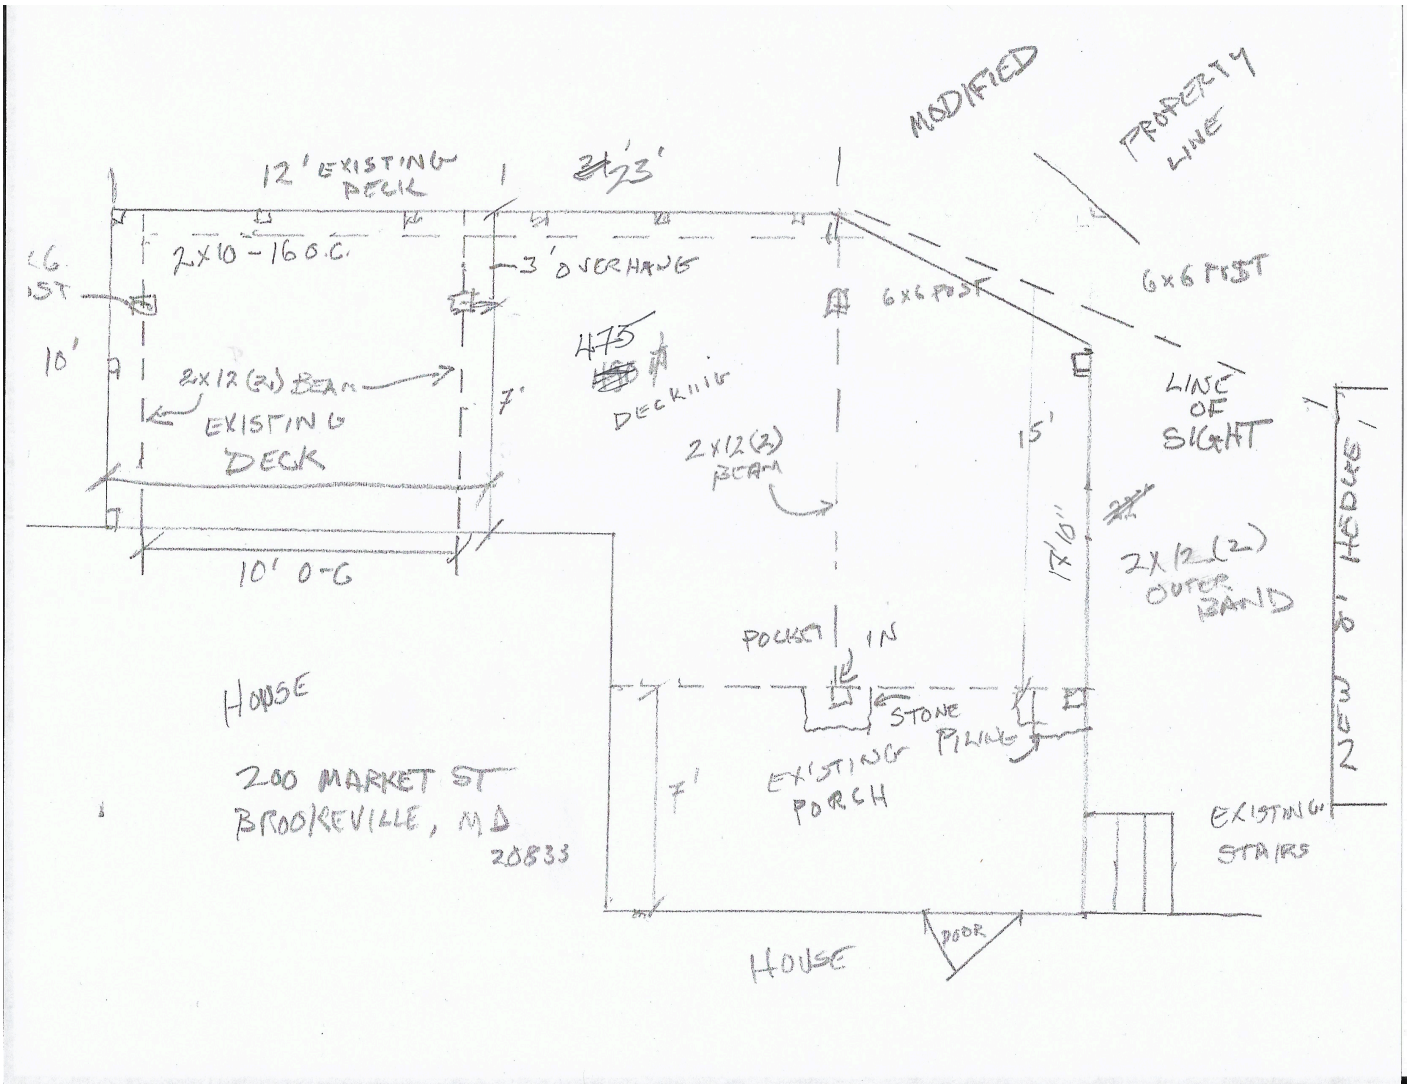 MODIFIED
PROPERTY
LINE
12' EXISTING
DECK
23'
2X10-16 O.C.
3' OVERHANG
6X6 POST
6X6 POST
10'
475
DECKING
2X12(2) BEAM
EXISTING
DECK
7'
2X12(2)
BEAM
15'
LINE
OF
SIGHT
17'10"
2X12(2)
OUTER
BAND
NEW 8' HEDGE
10' 0-6
POCKET IN
HOUSE
200 MARKET ST
BROOKEVILLE, MD
20833
7'
STONE
PILING
EXISTING
PORCH
EXISTING
STAIRS
DOOR
HOUSE